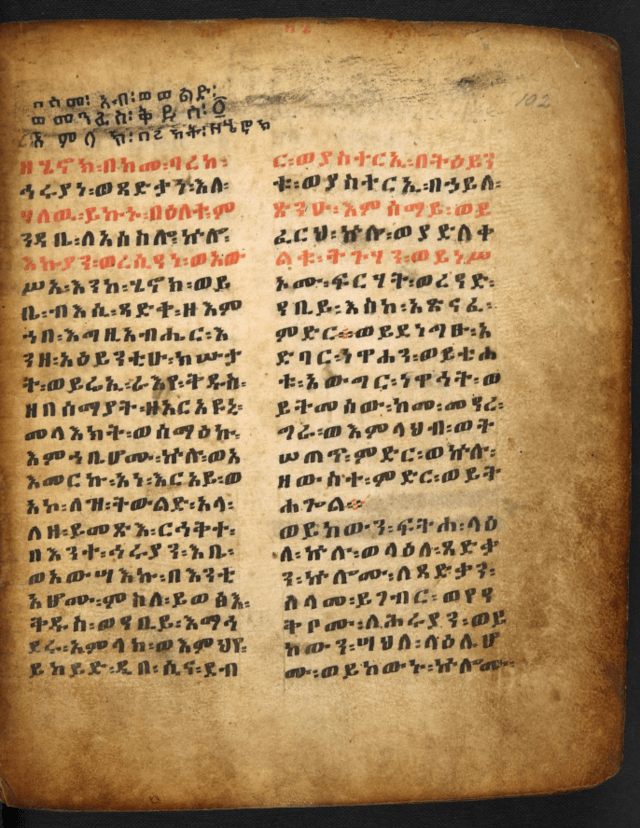 በስመ፡ አብ፡ ወወልድ፡
ወመንፈስ፡ ቅዱስ፡ ፩
አምላክ፡ በረከት፡ ዘሄኖክ
ዘሄኖክ፡ በከመ፡ ባረከ፡
ኅሩያነ፡ ወጻድቃነ፡ እለ፡
ሃለዉ፡ ይኩኑ፡ በዕለተ፡ ም
ንዳቤ፡ ለአሰስሎ፡ ኵሎ፡
እኩያን፡ ወረሲዓን፡ ወአው
ሥአ፡ እንከ፡ ሄኖክ፡ ወይ
ቤ፡ ብእሲ፡ ጻድቅ፡ ዘእም
ኀበ፡ እግዚአብሔር፡ እ
ንዘ፡ አዕይንቲሁ፡ ክሡታ
ት፡ ወይሬኢ፡ ራእየ፡ ቅዱሰ፡
ዘበሰማያት፡ ዘአርአዩኒ፡
መላእክት፡ ወሰማዕኩ፡
እምኀቤሆሙ፡ ኵሎ፡ ወአ
እመርኩ፡ አነ፡ እርአይ፡ ወ
አኮ፡ ለዝ፡ ትውልድ፡ አላ፡
ለዘ፡ ይመጽእ፡ ርኅቅተ፡
በእንተ፡ ኅሩያን፡ እቤ፡
ወአውሣእኩ፡ በእንቲ
አሆሙ፡ ምስለ፡ ይወፅእ፡
ቅዱስ፡ ወዓቢይ፡ እማኅ
ደሩ፡ አምላከ፡ ወእምህየ፡
ይከይድ፡ ዲበ፡ ሲና፡ ደብ
102
ር፡ ወያስተርኢ፡ በትዕይን
ቱ፡ ወያስተርኢ፡ በኃይለ፡
ጽንዑ፡ እምሰማይ፡ ወይ
ፈርህ፡ ኵሉ፡ ወያድለቀ
ልቁ፡ ትጉሃን፡ ወይነሥ
አሙ፡ ፍርሃት፡ ወረዓድ፡
ዓቢይ፡ እስከ፡ አጽናፈ፡
ምድር። ወይደነግፁ፡ አ
ድባር፡ ነዋኃን፡ ወይቲሐ
ቱ፡ አውግር፡ ነዋኅት፡ ወ
ይትመሰው፡ ከመ፡ መዓረ፡
ግራ፡ ወእምላህብ፡ ወት
ሠጠጥ፡ ምድር፡ ወኵሉ፡
ዘውስተ፡ ምድር፡ ወይት
ሐጐል።
ወይከውን፡ ፍትሐ፡ ላዕ
ለ፡ ኵሉ፡ ወላዕለ፡ ጻድቃ
ን፡ ኵሎሙ፡ ለጻድቃን፡
ሰላመ፡ ይገብር፡ ወየዓ
ቅቦሙ፡ ለኅሩያን፡ ወይ
ከውን፡ ሣህለ፡ ላዕሌሆ
ሙ፡ ወይከውኑ፡ ኵሎሙ፡